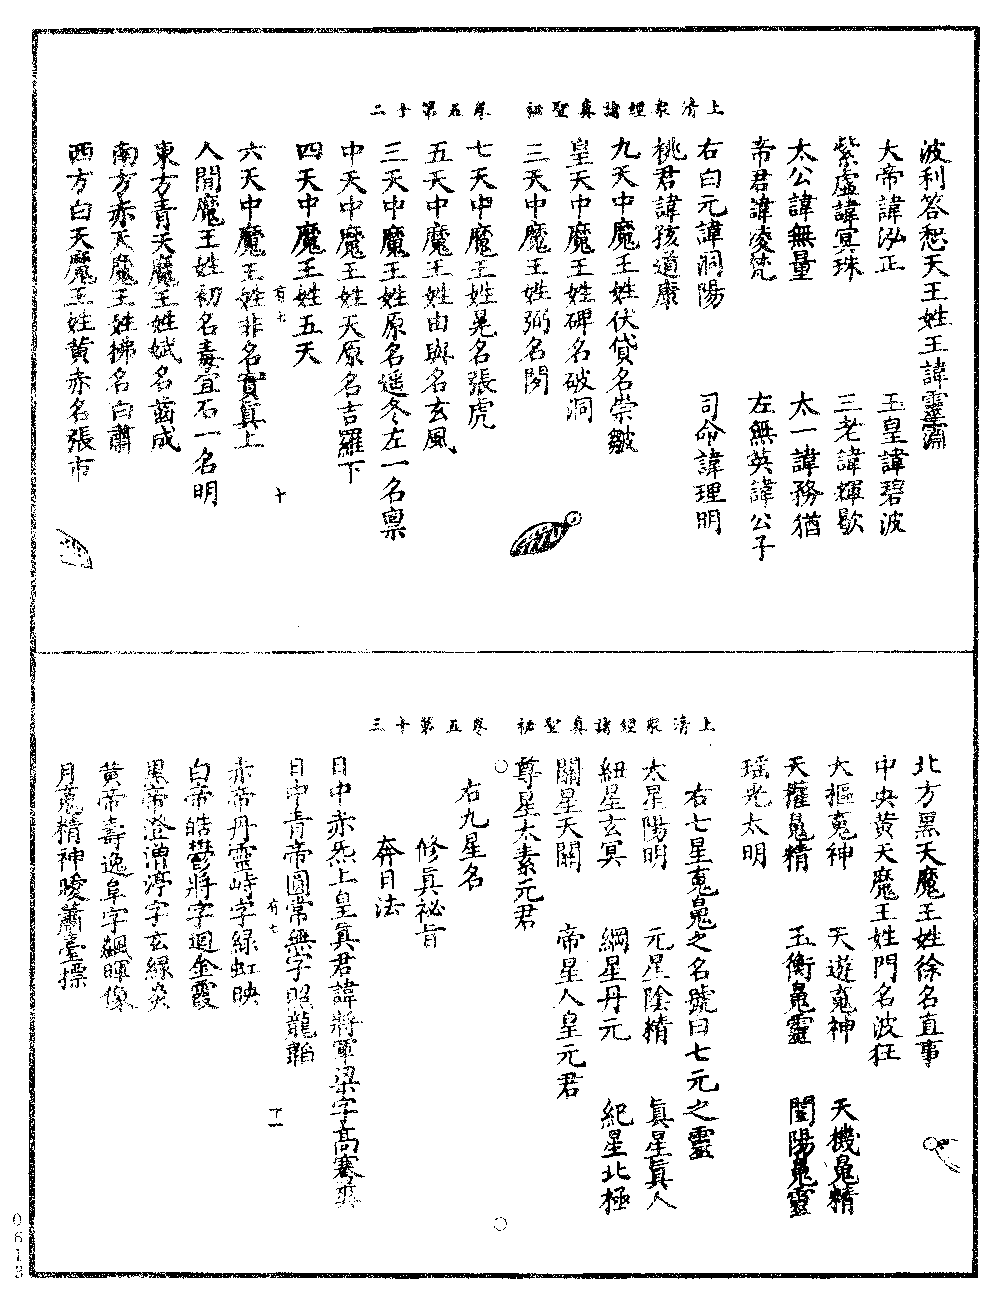 上清衆經諸真聖祕　卷五第十二
波利答恕天王姓王諱霐淵
大帝諱泓正　玉皇諱碧波
紫虛諱冥珠　三老諱輝歇
太公諱無量　太一諱務猶
帝君諱凌梵　左無英諱公子
右白元諱洞陽　司命諱理明
桃君諱孩道康
九天中魔王姓伏貸名崇皺
皇天中魔王姓碑名破洞
三天中魔王姓弼名閔
七天中魔王姓晃名張虎
五天中魔王姓由與名玄風
三天中魔王姓原名遥冬左一名禀
中天中魔王姓天原名吉羅下
四天中魔王姓五天
有七　十
六天中魔王姓非名寶真上
人間魔王姓初名毒宜石一名明
東方青天魔王姓斌名齒成
南方赤天魔王姓拂名白肅
西方白天魔王姓黄赤名張市
上清衆經諸真聖祕　卷五第十三
北方黑天魔王姓徐名直事
中央黄天魔王姓門名波狂
天樞䰟神　天遊䰟神　天機䰟精
天權䰟精　玉衡䰟靈　闓陽䰟靈
瑶光太明
右七星䰟䰟之名號曰七元之靈
太星陽明　元星陰精　真星真人
紐星玄冥　綱星丹元　紀星北極
關星天關　帝星人皇元君
尊星太素元君
右九星名
修真祕旨
奔日法
日中赤炁上皇真君諱將軍梁字高騫爽
日中青帝圓常無字照龍韜
有七　丁一
赤帝丹靈峙字綠虹映
白帝皓鬱將字迴金霞
黑帝澄潸渟字玄綠炎
黄帝壽逸阜字飇暉像
月䰟精神曖蕭臺摽
0613